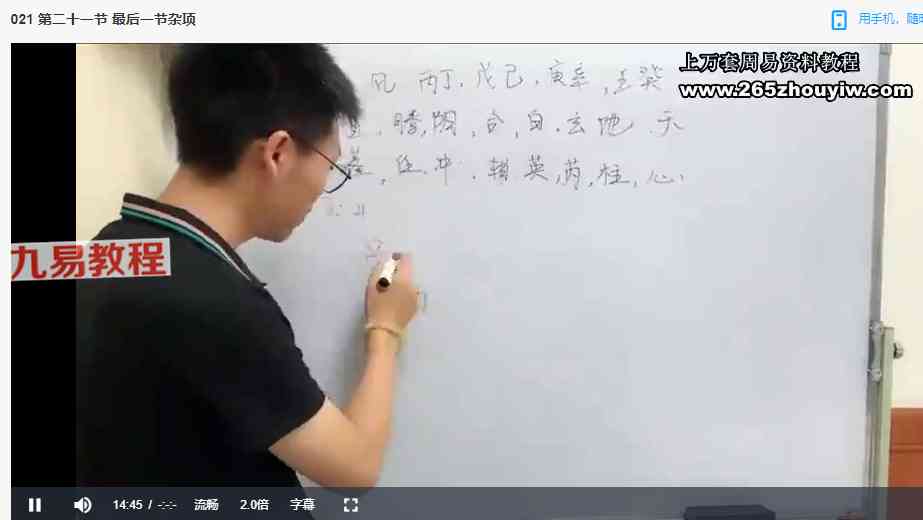 021 第二十一节 最后一节杂项
用手机，随
上万套周易资料教程
www.265zhouyiw.com
丙丁、戊己、庚辛，壬癸
腾,阴,合,白、玄地 天
任、冲、辅英,芮,柱,心、
九易教程
14:45 / -:-:- 流畅 2.0倍 字幕